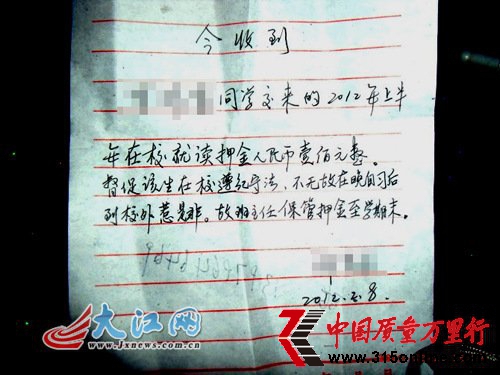 今收到
同学交来的2012年上半
年在校就读押金人民币壹佰元整。
督促该生在校遵纪守法,不无故在晚自习后
到校外惹是非。故班主任保管押金至学期末。
2012.2.8.
大江网
www.jxnews.com.cn
中国质量万里行
www.315online.com